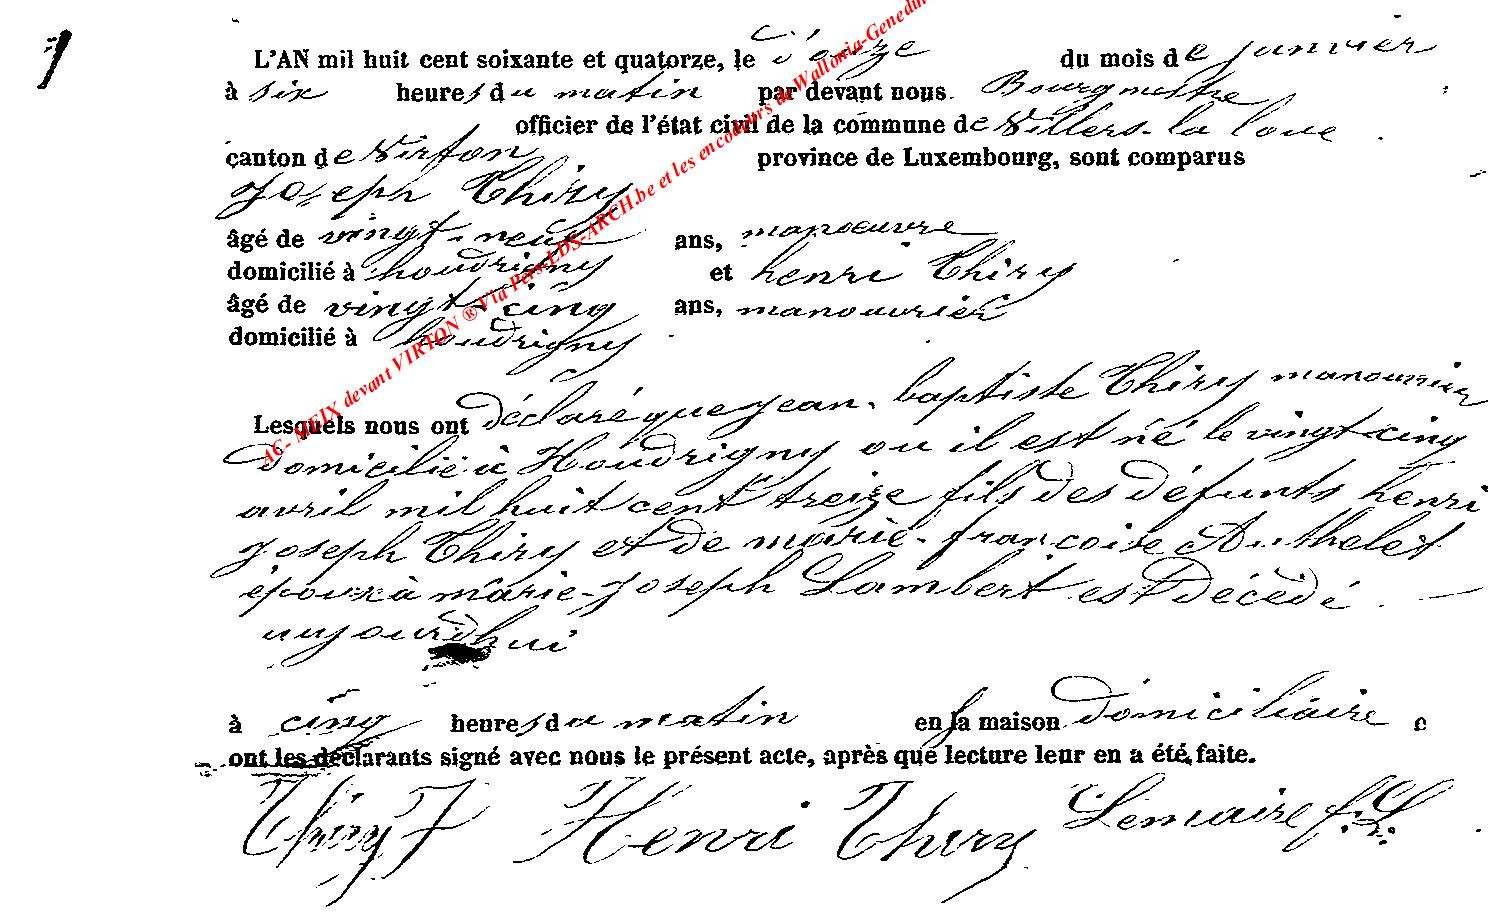 1
L'AN mil huit cent soixante et quatorze, le douze du mois de janvier
à six heures du matin par devant nous Bourgmestre
officier de l'état civil de la commune de Villers-la loue
canton de Virton province de Luxembourg, sont comparus
Joseph Thiry
âgé de vingt-neuf ans, manoeuvre
domicilié à houdrigny et henri Thiry
âgé de vingt-cinq ans, manouvrier
domicilié à houdrigny
Lesquels nous ont déclaré que jean-baptiste Thiry manouvrier
domicilié à Houdrigny ou il est né le vingt-cinq
avril mil huit cent treize fils des défunts henri
joseph Thiry et de marie-françoise Authelet
époux à marie-joseph Lambert est décédé
aujourdhui
à cinq heures du matin en la maison domiciliaire e
ont les déclarants signé avec nous le présent acte, après que lecture leur en a été faite.
Thiry J Henri Thiry Lemaire
A6- MEIX devant VIRTON ® Via Pers-LDS-ARCH.be et les encodeurs de Wallonia-Genedin